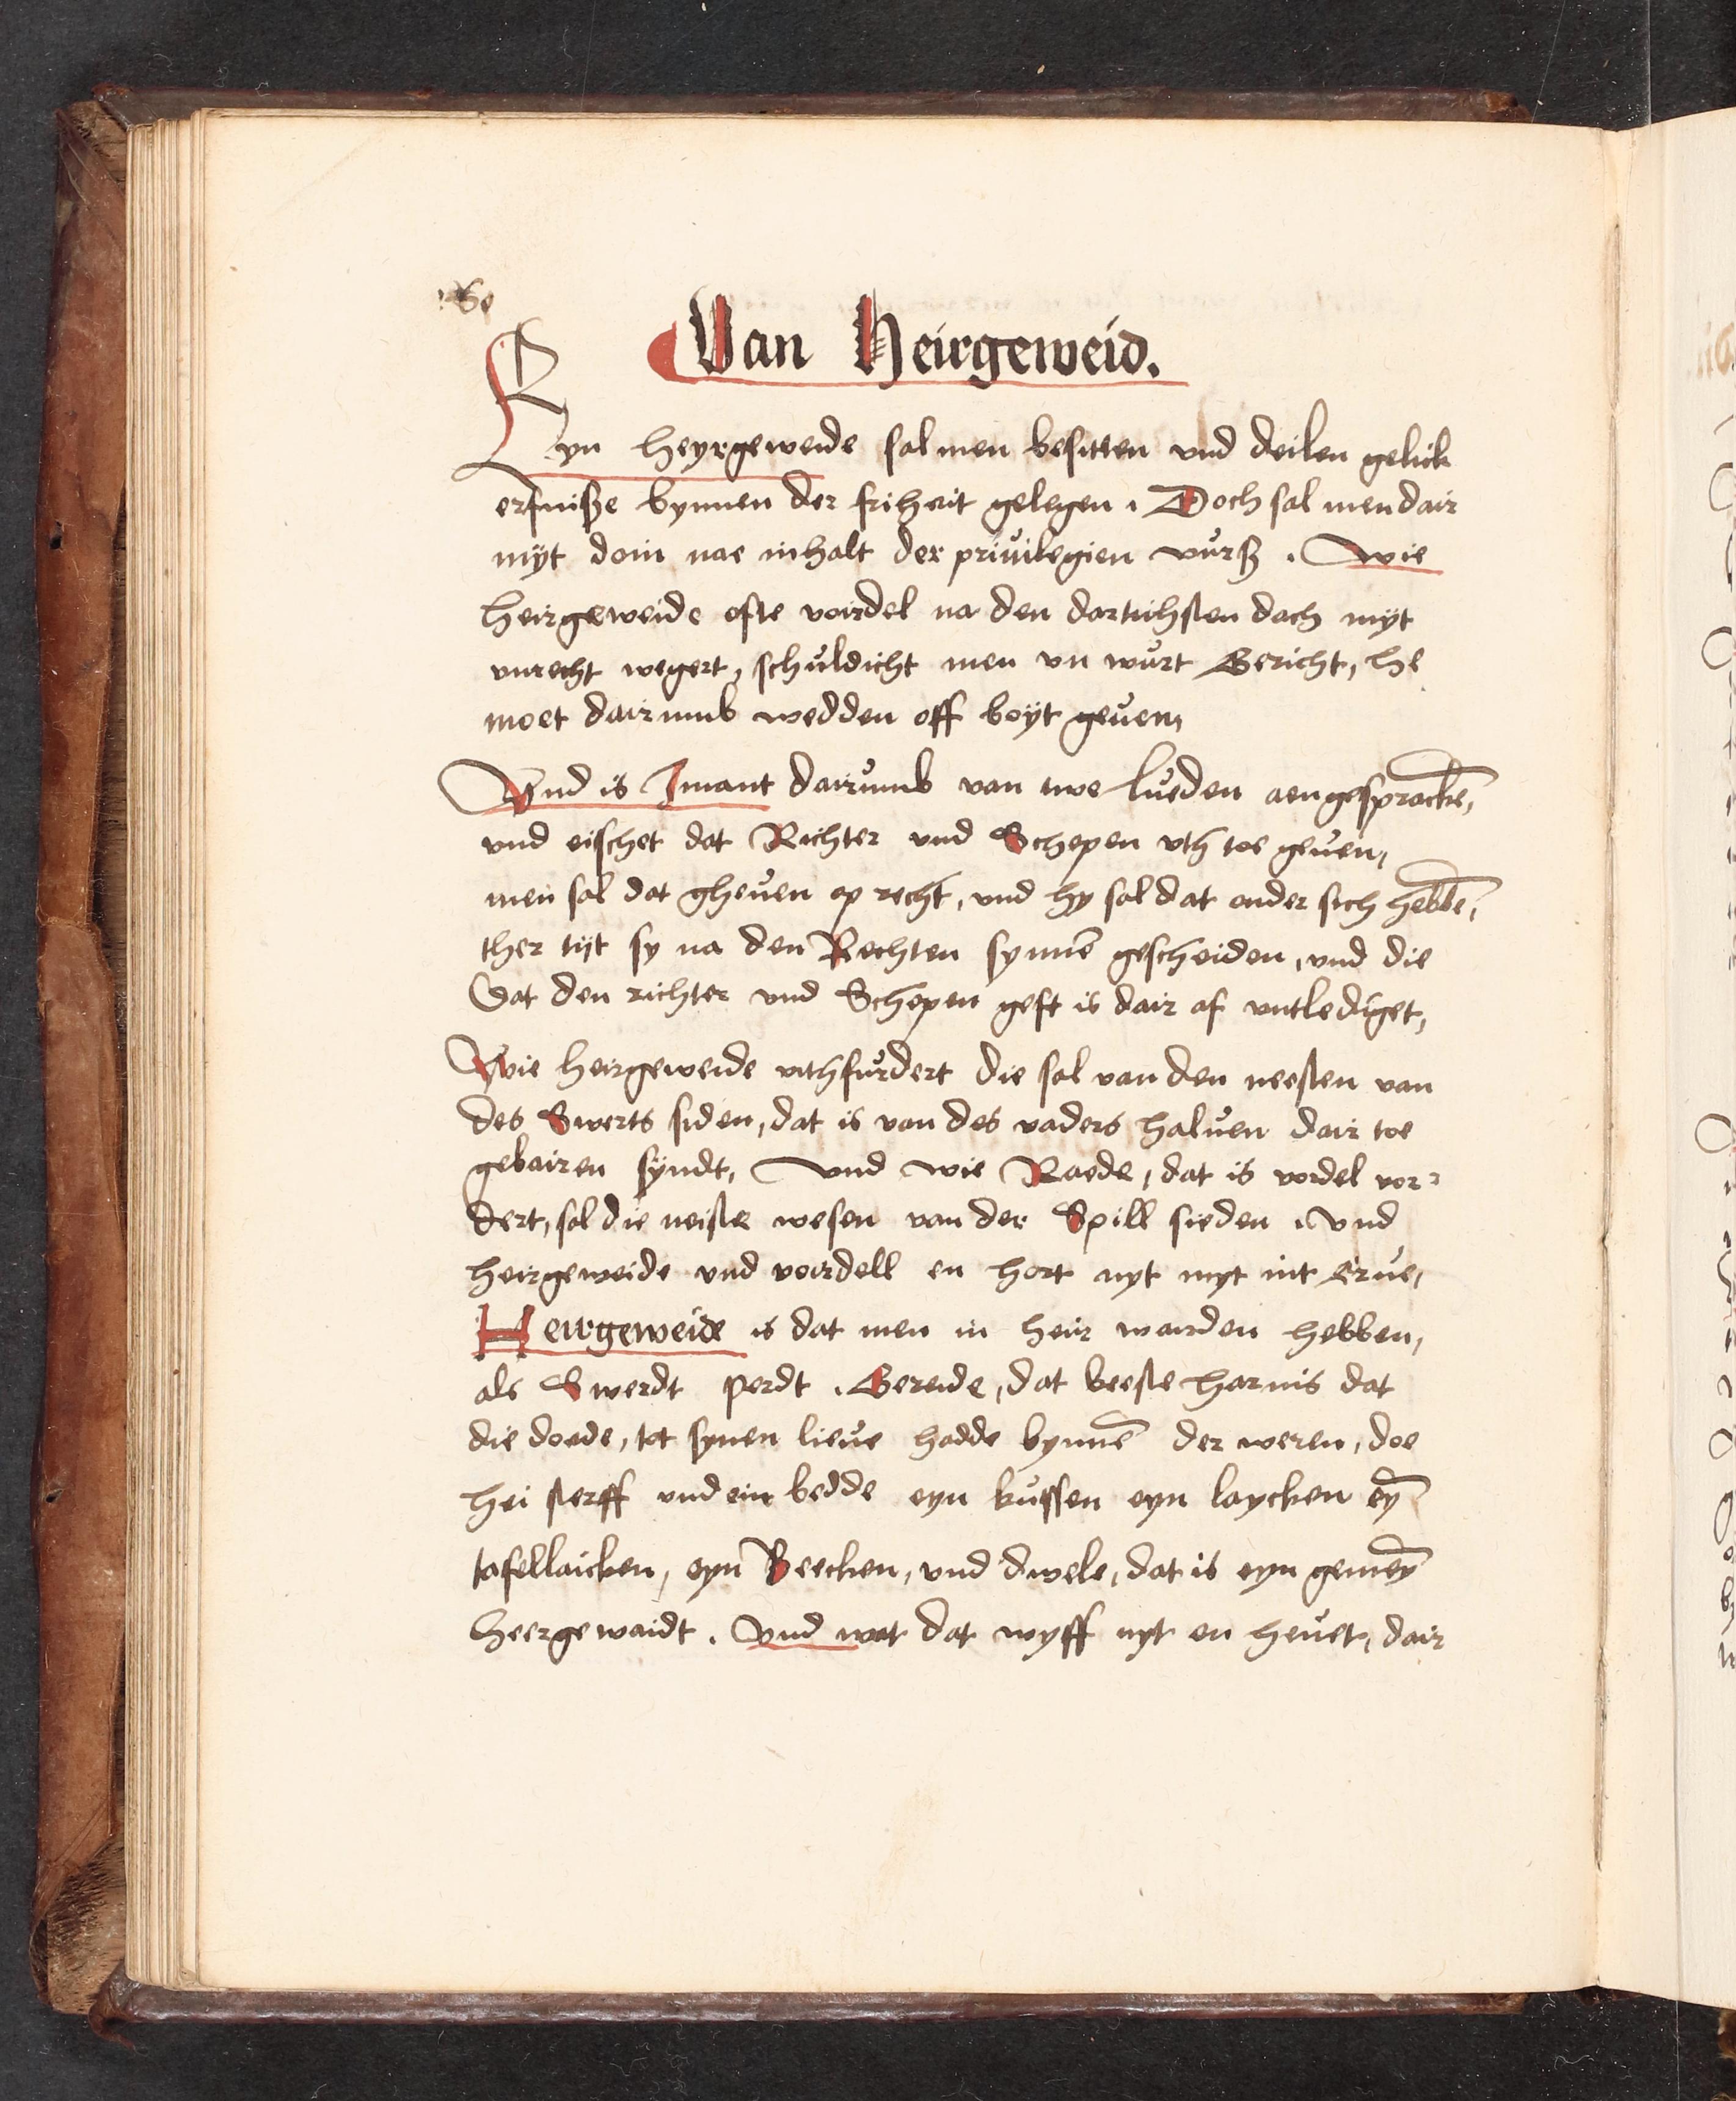 Van Heirgeweid.
Eyn heyrgeweide sal men besitten vnd deilen gelick
erfniße bynnen der friheit gelegen. Doch sal men dair
myt doin nae inhalt der priuilegien vurß. Wie
heirgeweide ofte voirdel na den dartichsten dach myt
vnrecht wegert, schuldicht men vn wurt Gericht, he
moet dairumb wedden off boyt geuen,
Vnd is Jmant dairumb van twe lueden aengesprocke͂,
vnd eischet dat Richter vnd Schepen vth toe geuen,
men sal dat gheuen op recht, vnd hy sal dat onder sich hebbe͂,
ther tyt sy na den Rechten synne͂ gescheiden, vnd die
Dat den richter vnd Schepen geft is dair af vntlediget,
Wie heirgeweide vthfurdert die sal van den neesten van
des Swerts siden, dat is van des vaders haluen dair toe
gebairen syndt, Vnd wie Raede, dat is vordel vor-
dert, sal die neiste wesen van der Spill sieden. Vnd
heirgeweide vnd voirdell en hort nyt myt int Erue,
Heirgeweide is dat men in heir warden hebben,
als Swerdt perdt. Gereide, dat beeste harnis dat
die doede, tot synen lieue hadde bynne͂ der weren, doe
hei sterff vnd ein bedde eyn kussen eyn laycken ey͂
tafellaicken, eyn Beecken, vnd dwele, dat is eyn gemey͂
heergewaidt. Vnd wat dat wyff nyt en heuet, dair